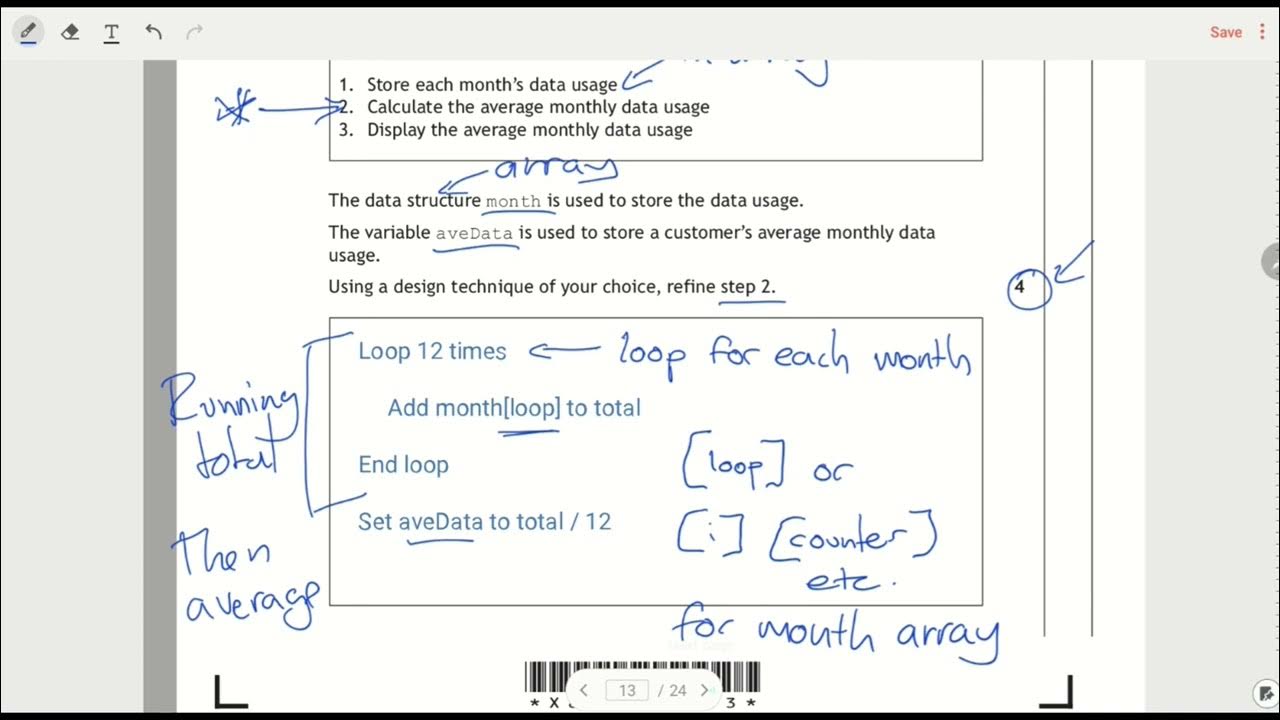 T
Save
1. Store each month's data usage
2. Calculate the average monthly data usage
3. Display the average monthly data usage
array
The data structure month is used to store the data usage.
The variable aveData is used to store a customer's average monthly data
usage.
Using a design technique of your choice, refine step 2.
4
Loop 12 times
loop for each month
Running
total
Add month[loop] to total
End loop
[loop] or
Set aveData to total / 12
[i] [counter]
etc.
Then
average
for month array
13 / 24
* X
3 *